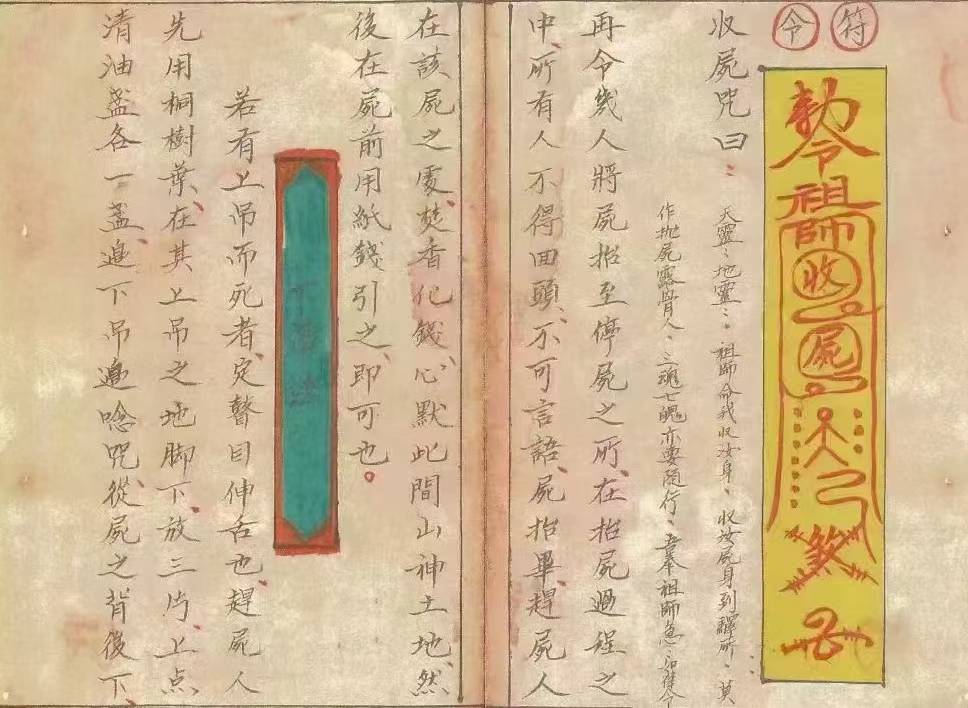 符令
勅令祖師收屍煞
収屍咒曰：
天靈〻地靈〻。祖師命我収汝身、収汝屍身到驛所、莫
作抛屍露骨人、三魂七魄亦要隨行、吾奉祖師急〻如律令
再令幾人將屍抬至停屍之所、在抬屍過程之
中、所有人不得回頭、不可言語、屍抬畢、趕屍人
在該屍之處、焚香化錢、心默此間山神土地、然
後在屍前用紙錢引之、即可也。
若有上吊而死者、定瞽目伸舌也、趕屍人
先用桐樹葉、在其上吊之地脚下、放三片、上点
清油盞各一盞、邊下吊邊唸咒、從屍之背後下、